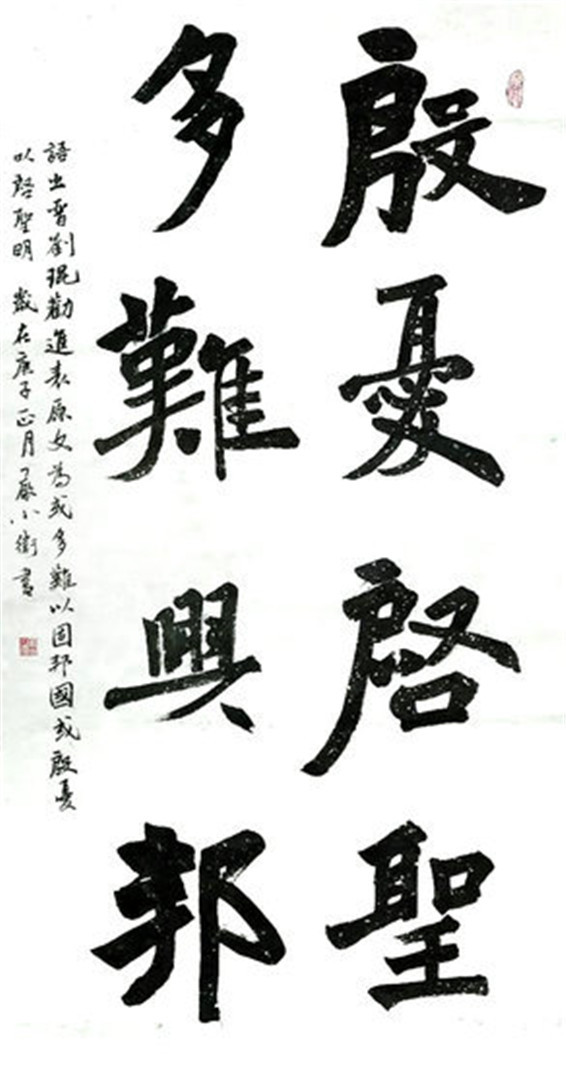 殷憂啓聖
多難興邦
語出晉劉琨勸進表原文為或多難以固邦國或殷憂
以啓聖明 歲在庚子正月 嚴小衛書